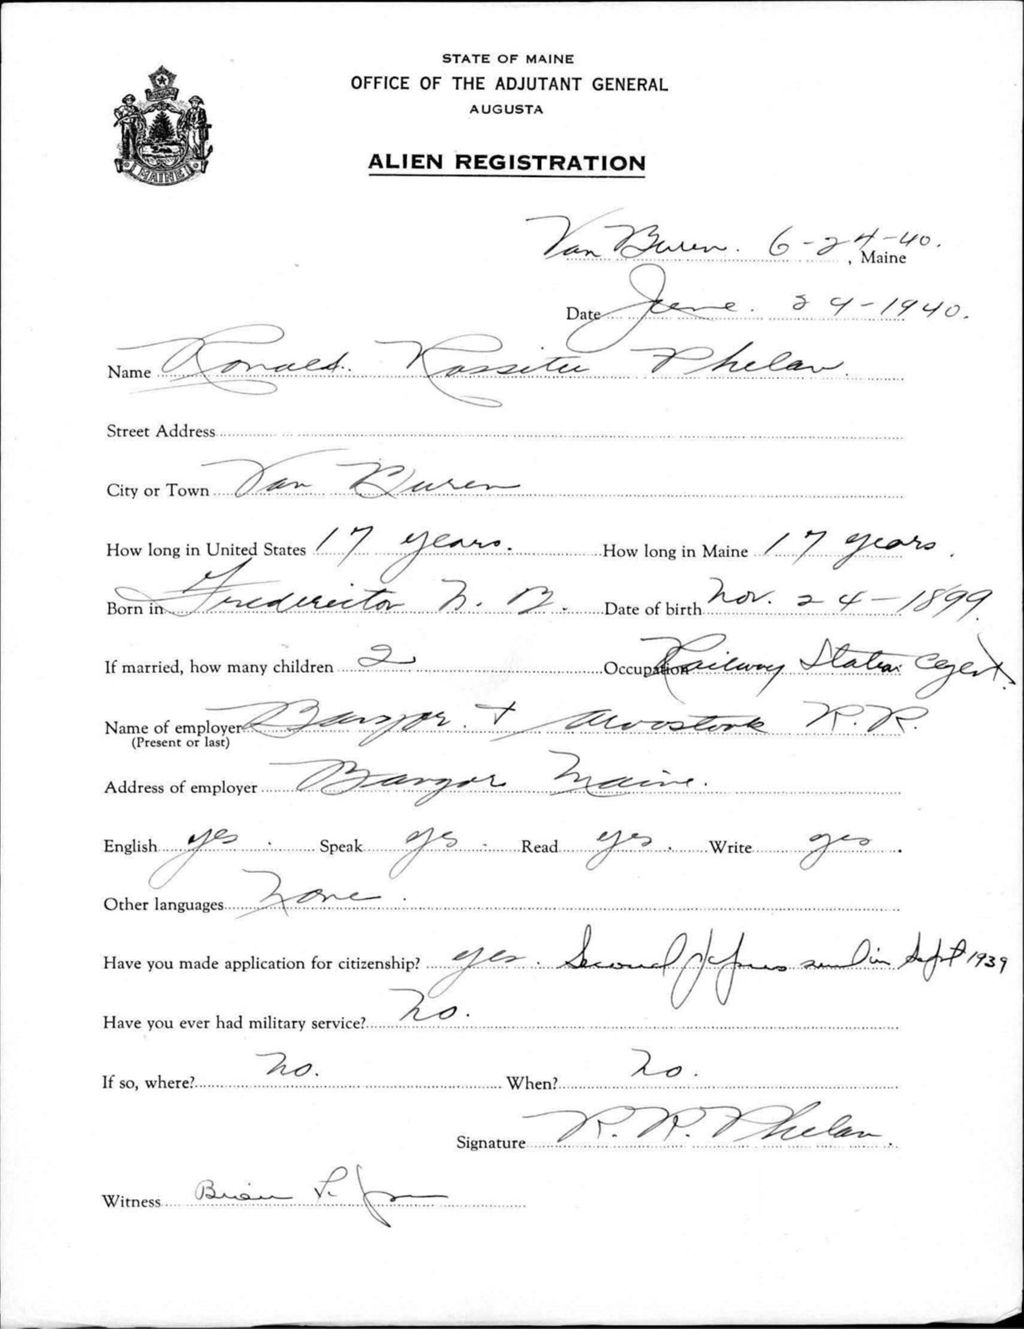 STATE OF MAINE
OFFICE OF THE ADJUTANT GENERAL
AUGUSTA
ALIEN REGISTRATION
MAINE
Van Buren. 6-24-40.
, Maine
Date June. 24-1940.
Name Ronald. Rossiter Phelan.
Street Address
City or Town Van Buren
How long in United States 17 years. How long in Maine 17 years.
Born in Fredericton N. B. Date of birth Nov. 24-1899
If married, how many children 2 Occupation Railway Station Agent.
Name of employer Bangor. + Aroostook R.R.
(Present or last)
Address of employer Bangor Maine.
English yes. Speak yes. Read yes. Write yes.
Other languages None.
Have you made application for citizenship? yes. Second papers in Sept 1939
Have you ever had military service? No.
If so, where? No. When? No.
Signature R. R. Phelan.
Witness Brian